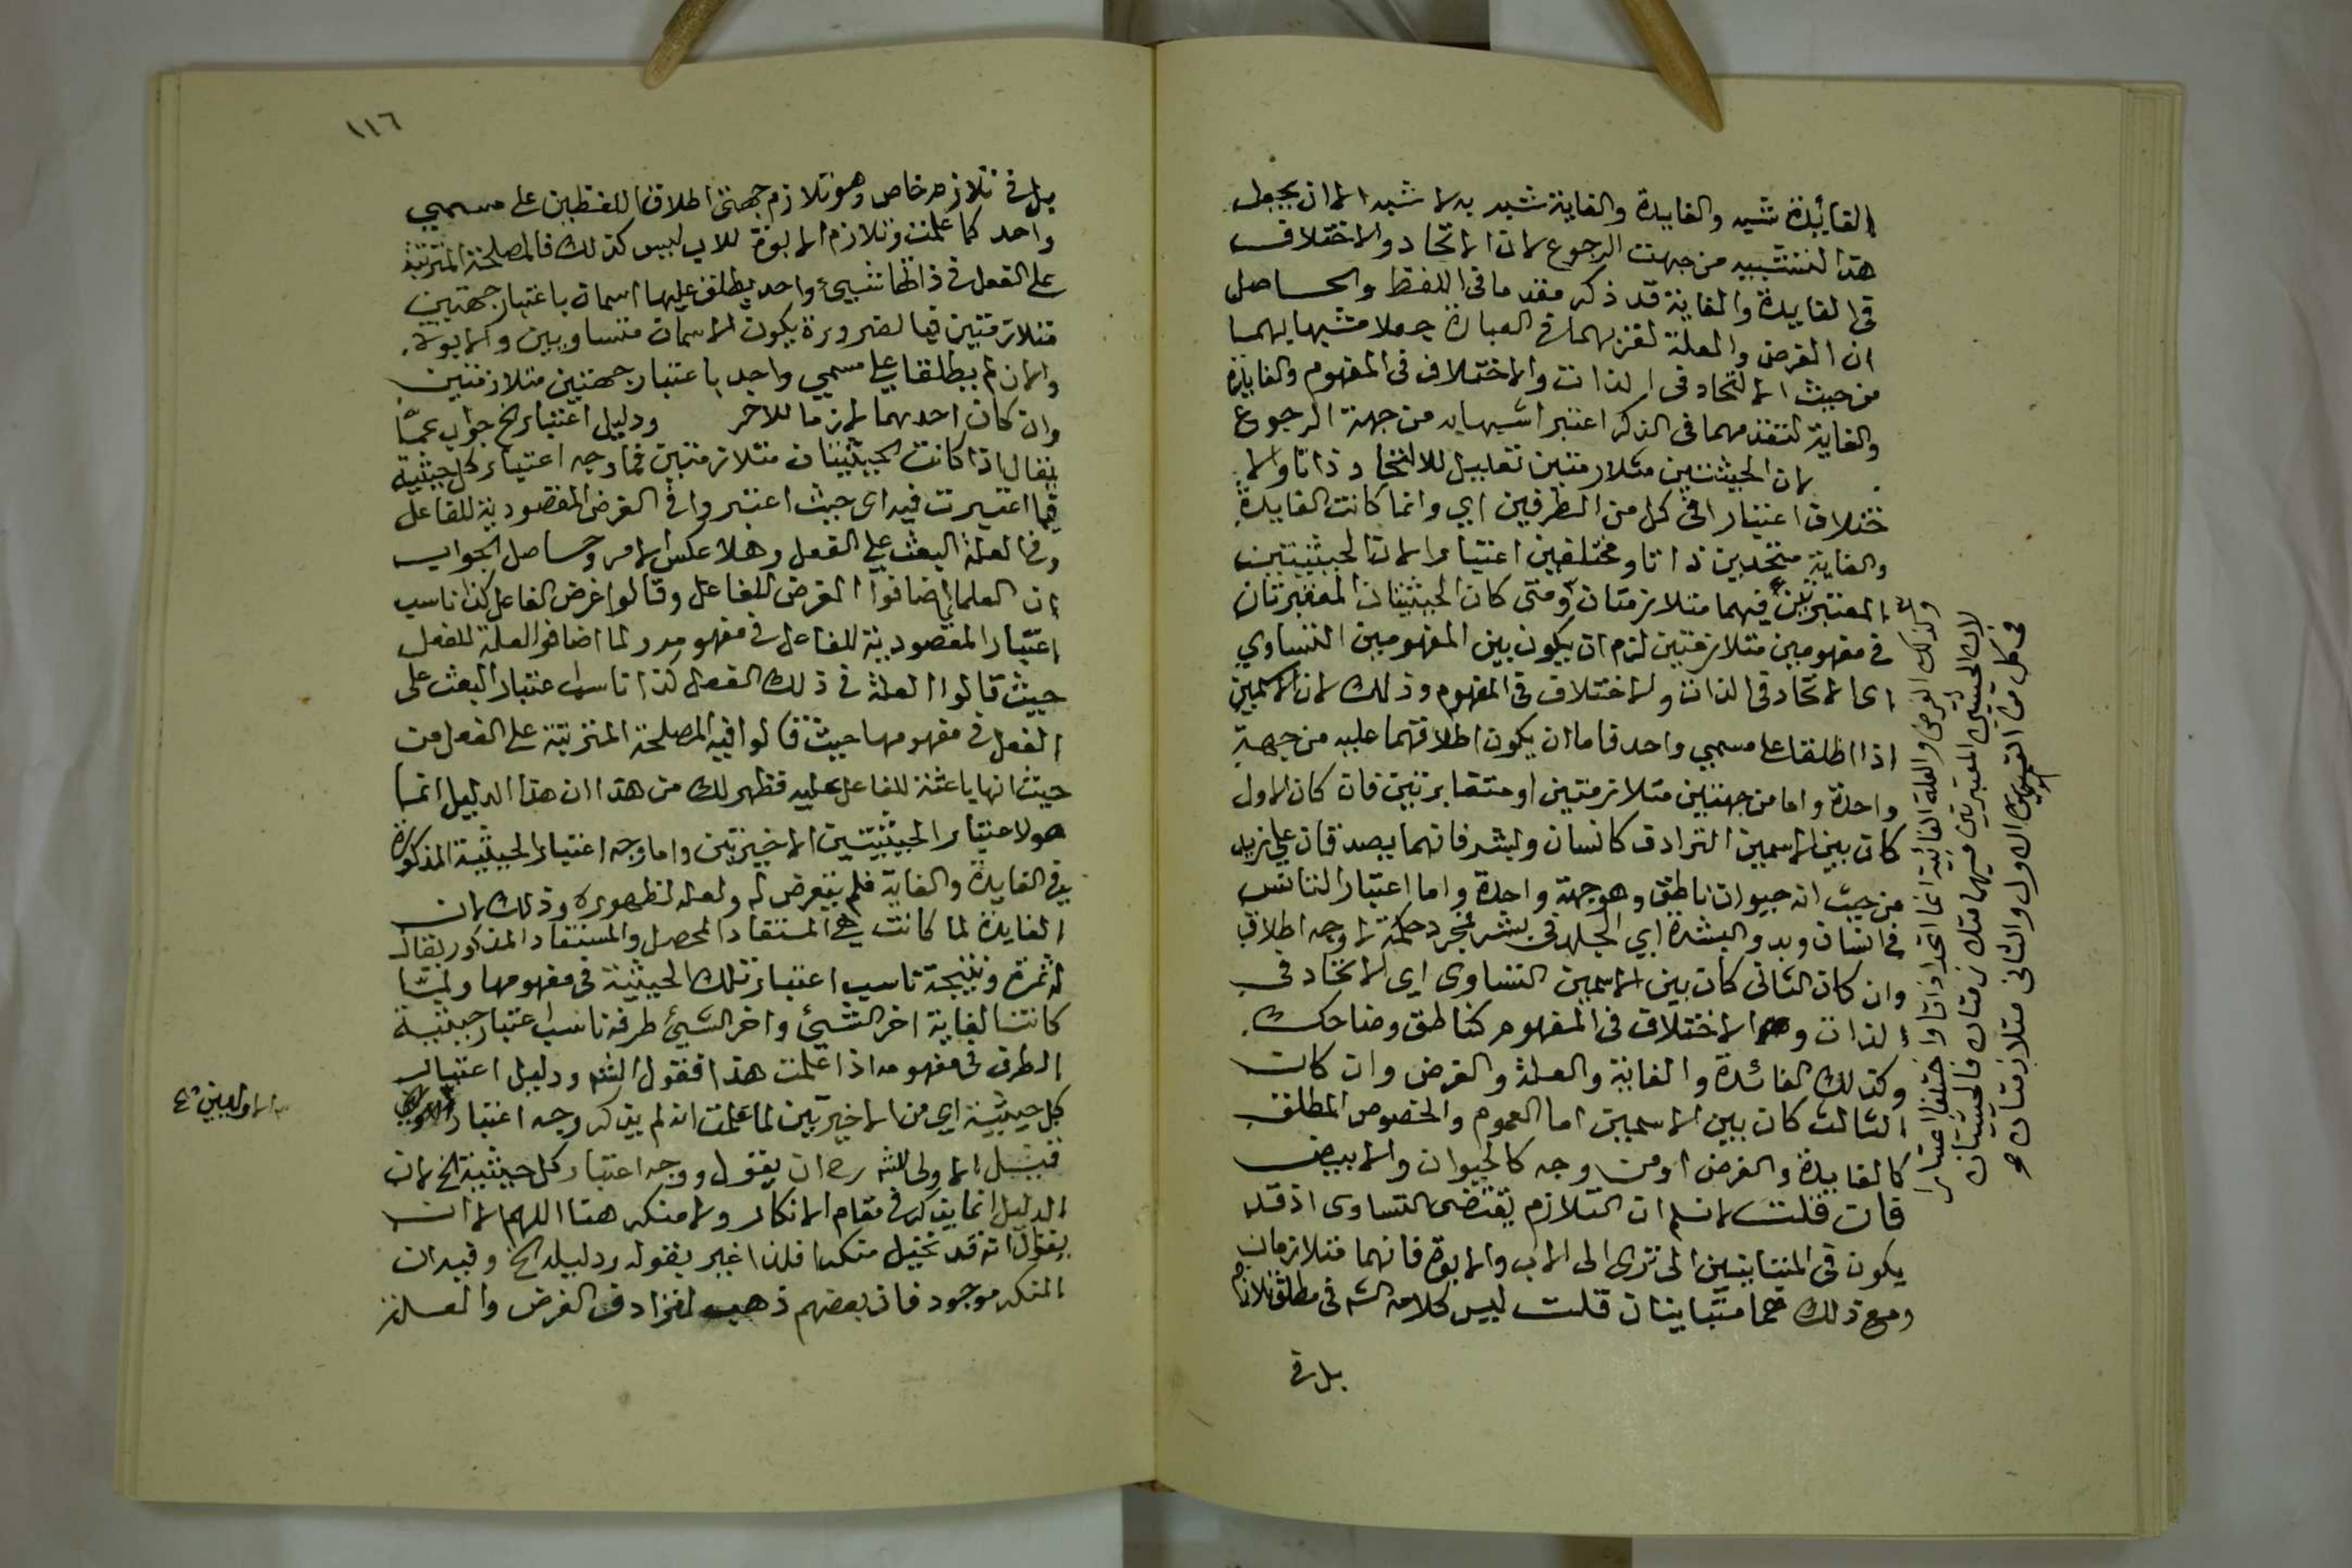 الفائدة شبه والفايدة والغاية شبه به لا شبه الا ان يجعل
هذا التشبيه من جهت الرجوع لان الاتحاد والاختلاف
في الفايدة والغاية قد ذكر مقدما في اللفظ والحاصل
ان الغرض والعلة لقربهما في العبارة جعلا مشبها بهما
من حيث الاتحاد في الذات والاختلاف في المفهوم والفايدة
والغاية لتقدمهما في الذكر اعتبر اشبها به من جهة الرجوع
لان الحيثيتين متلازمتين تعليل للاتحاد ذاتا والا
ختلاف اعتبارا في كل من الطرفين اي وانما كانت الفايدة
والغاية متحدين ذاتا ومختلفين اعتبارا لان الحيثيتين
المعتبرتين فيهما متلازمتان ومتى كان الحيثيتان المعتبرتان
في مفهومين متلازمتين لزم ان يكون بين المفهومين التساوي
اي الاتحاد في الذات والاختلاف في المفهوم وذلك لان الاسمين
اذا اطلقا على مسمي واحد فاما ان يكون اطلاقهما عليه من جهة
واحدة واما من جهتين متلازمتين او متغايرتين فان كان الاول
كان بين الاسمين الترادف كانسان وبشر فانهما يصدقان على زيد
من حيث انه حيوان ناطق وهو جهة واحدة واما اعتبار التانس
في انسان وبدو البشرة اي الجلد في بشر لمجرد حكمة لا وجه اطلاق
وان كان الثاني كان بين الاسمين التساوي اي الاتحاد في
الذات والاختلاف في المفهوم كناطق وضاحك
وكذلك الفائدة والغاية والعلة والغرض وان كان
الثالث كان بين الاسمين اما العموم والخصوص المطلق
كالفايدة والغرض او من وجه كالحيوان والابيض
فان قلت لا نسلم ان التلازم يقتضى التساوى اذ قد
يكون في المتباينين الا ترى الى الاب والابوة فانهما متلازمان
ومع ذلك هما متباينان قلت ليس كلامه الش في مطلق تلازم
بل في
وكذلك الغرض والعلة الغائية انما اتحدا ذاتا واختلفا اعتبارا
لان الحيثيتين المعتبرتين فيهما متلازمتان فالحيثيتان
في كل من القسمين الاول والثاني متلازمتان
١١٦
بل في تلازم خاص وهو تلازم جهتي اطلاق اللفظين على مسمي
واحد كما علمت وتلازم الابوة للاب ليس كذلك فالمصلحة المترتبة
على الفعل في ذاتها شيء واحد يطلق عليها اسمان باعتبار جهتين
متلازمتين فبالضرورة يكون الاسمان متساويين والابوة
والاب لم يطلقا على مسمي واحد باعتبار جهتين متلازمتين
وان كان احدهما لازما للاخر ودليل اعتبار الخ جواب عما
يقال اذا كانت الحيثيتان متلازمتين فما وجه اعتبار كل حيثية
فيما اعتبرت فيه اى حيث اعتبروا في الغرض المقصودية للفاعل
وفي العلة البعث على الفعل وهلا عكس الامر وحاصل الجواب
ان العلما اضافوا الغرض للفاعل وقالوا غرض الفاعل كذا ناسب
اعتبار المقصودية للفاعل في مفهومه ولما اضافوا العلة للفعل
حيث قالوا العلة في ذلك الفعل كذا ناسب اعتبار البعث على
الفعل في مفهومها حيث قالوا فيه المصلحة المترتبة على الفعل من
حيث انها باعثة للفاعل عليه فظهر لك من هذا ان هذا الدليل انما
هو لاعتبار الحيثيتين الاخيرتين واما وجه اعتبار الحيثية المذكورة
في الفايدة والغاية فلم يتعرض له ولعله لظهوره وذلك لان
الفايدة لما كانت هي المستفاد المحصل والمستفاد المذكور يقال
له ثمرة ونتيجة ناسب اعتبار تلك الحيثية في مفهومها ولما
كانت الغاية اخر الشيئ واخر الشيئ طرفه ناسب اعتبار حيثية
الطرف في مفهومه اذا علمت هذا فقول الش ودليل اعتبار
كل حيثية اي من الاخيرتين لما علمت انه لم يذكر وجه اعتبار
الاوليين
قيل الاولى للش رح ان يقول ووجه اعتبار كل حيثية الخ لان
الدليل انما يذكر في مقام الانكار ولا منكر هنا اللهم الا ان
يقال انه قد تخيل منكرا فلذا غير بقوله ودليله الخ وقيد ان
المنكر موجود فان بعضهم ذهب لترادف الغرض والعلة